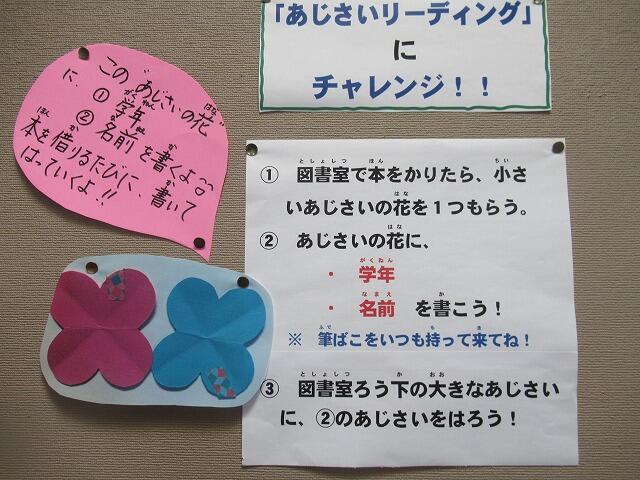 「あじさいリーディング」
に
チャレンジ！！
この"あじさいの花"
に、①学年
②名前を書くよ
本を借りるたびに、書いて
はっていくよ!!
① 図書室で本をかりたら、小さ
いあじさいの花を１つもらう。
② あじさいの花に、
・ 学年
・ 名前 を書こう！
※ 筆ばこをいつも持って来てね！
③ 図書室ろう下の大きなあじさい
に、②のあじさいをはろう！